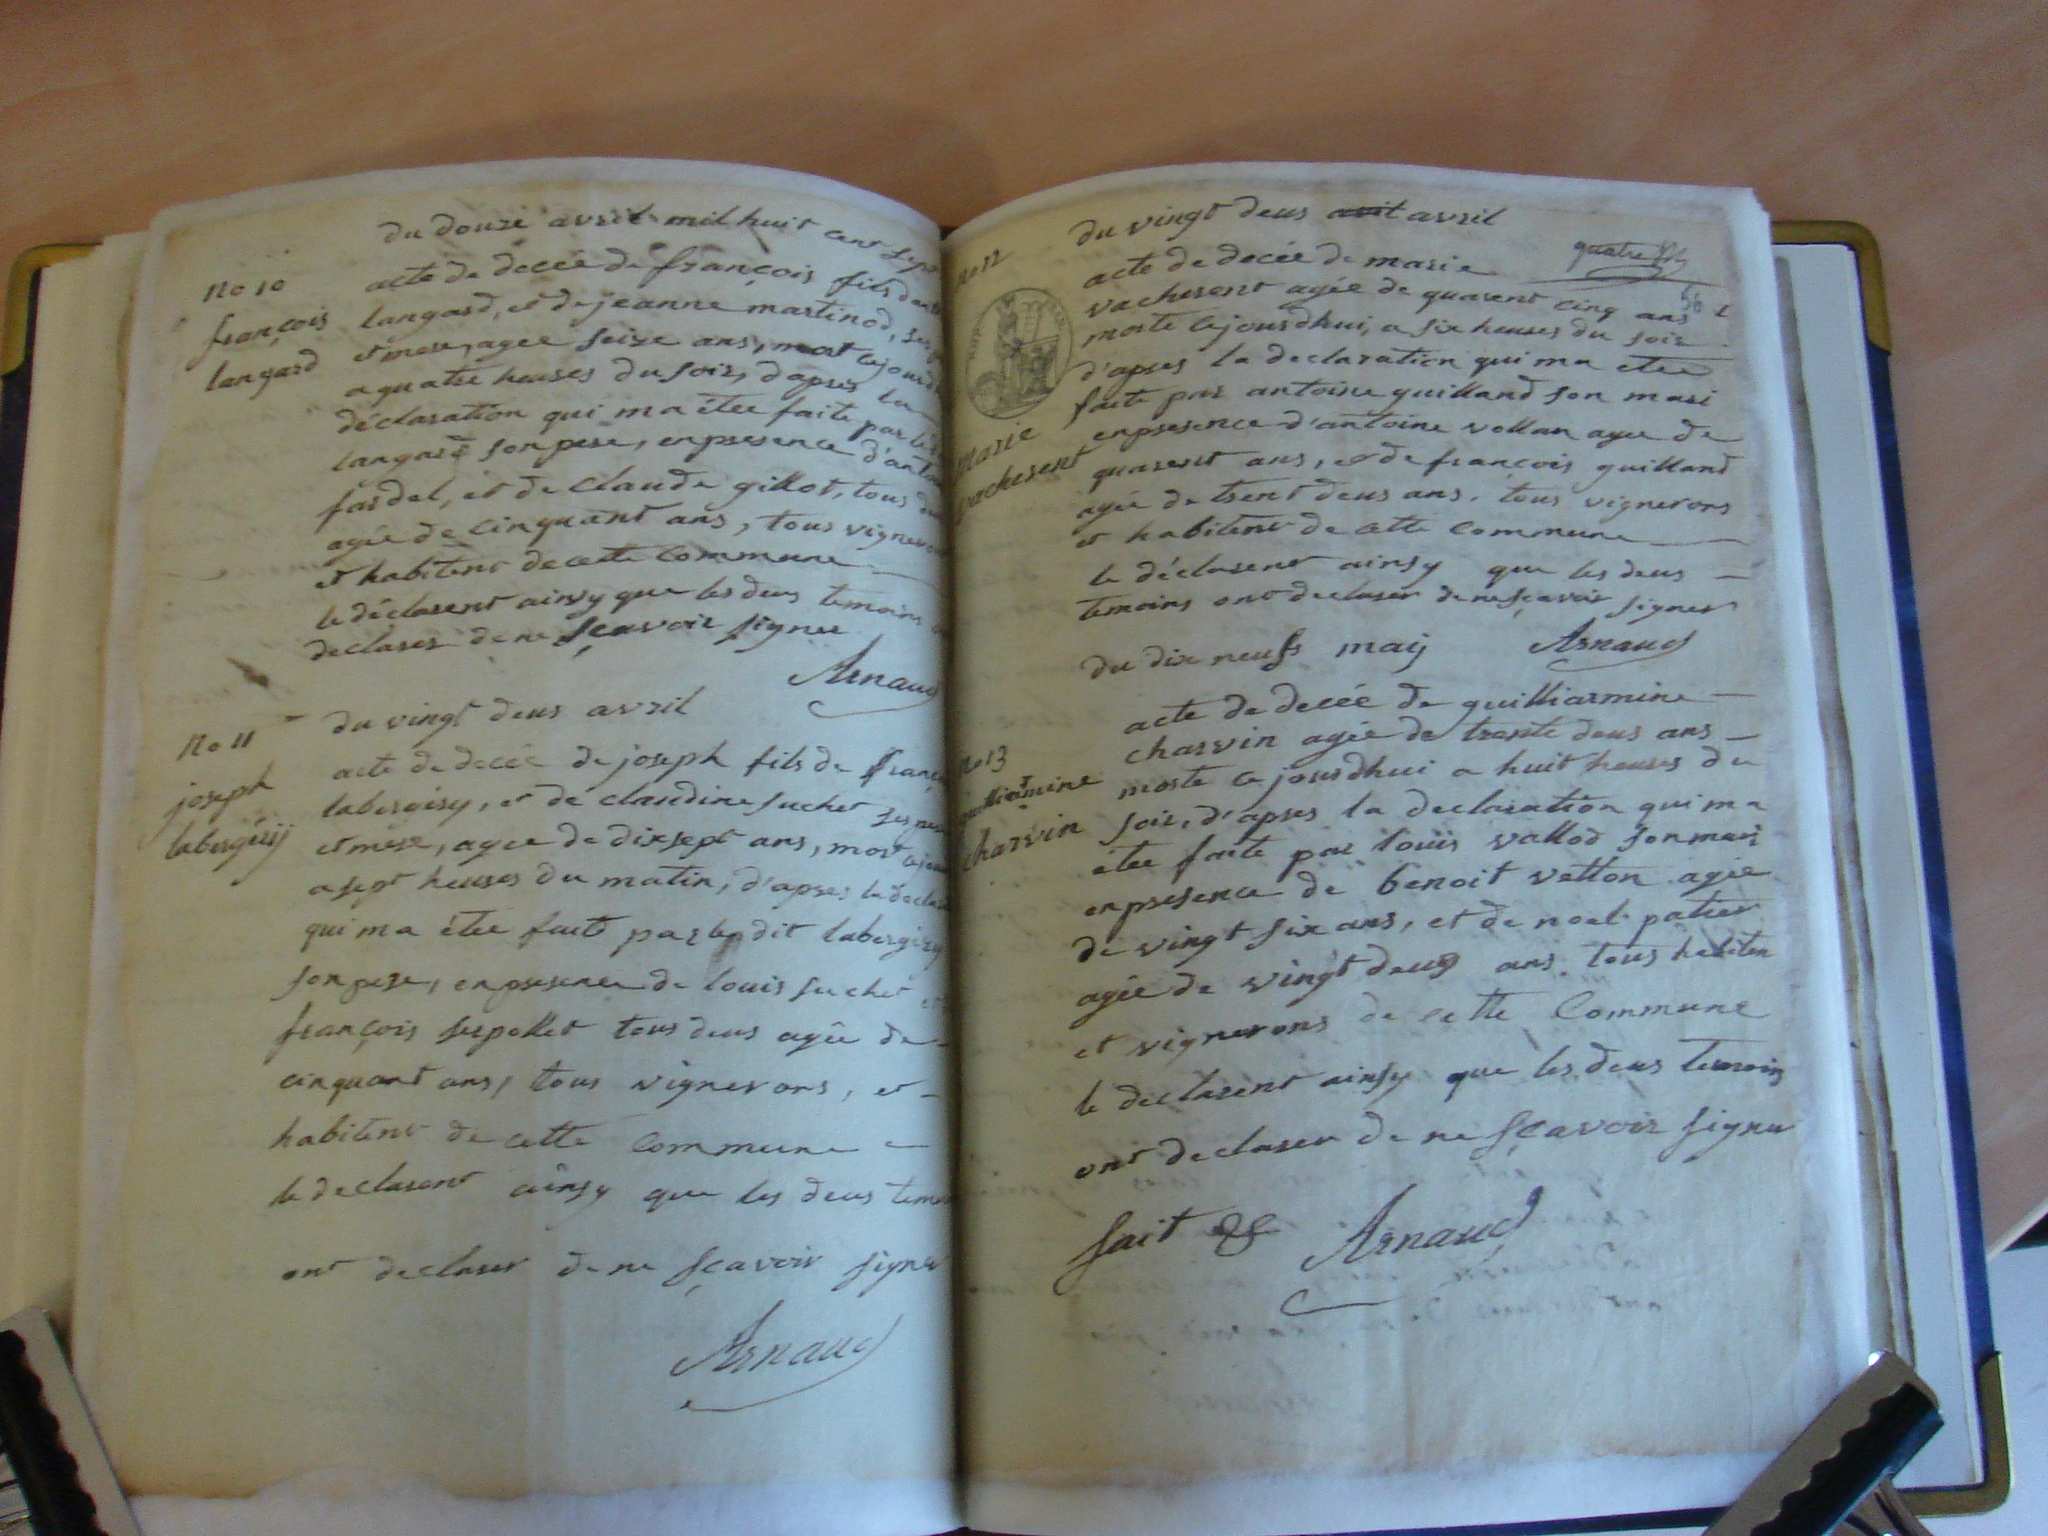 du douze avril mil huit cent sept
no 10
acte de decée de françois fils
françois
langard, et de jeanne martinod, ses
langard
et mere, agee seize ans, mort cejourd
a quatre heures du soir, d'apres la
déclaration qui ma étée faite par le
langard son pere, en presence d'
fardel, et de claude gillot, tous
agée de cinquant ans, tous vignerons
et habitent de cette commune
le déclarent ainsy que les deus temoins
declarer de ne sçavoir signer
Arnaud
no 11
du vingt deus avril
acte de decée de joseph fils de
joseph
labergérij
labergirij, et de claudine suchet ses
et mere, agee de dixsept ans, mort
a sept heures du matin, d'apres la
qui ma étée fait par le dit
son pere, en presence de louis suchet
françois serpollet tous deus agée de
cinquant ans, tous vignerons, et
habitent de cette commune
le declarent ainsy que les deus
ont declarer de ne sçavoir signer
Arnaud
du vingt deus avril avril
no 12
quatre
acte de decée de marie
vacherent agée de quarent cinq ans
56
morte cejourdhui, a six heures du soir
d'apres la declaration qui ma etee
faite par antoine guilland son mari
marie
vacherent
en presence d'antoine vollan agee de
quarent ans, et de françois guilland
agée de trent deus ans, tous vignerons
et habitent de cette commune
le déclarent ainsy que les deus
temoins ont declarer de ne sçavoir signer
du dix neufs maij
Arnaud
acte de decée de guilliarmine
no 13
charvin agée de trante deus ans
guilliarmine
charvin
morte ce jourdhui a huit heures du
soir, d'apres la declaration qui ma
étee faite par louïs vallod son mari
en presence de benoit vetton agée
de vingt six ans, et de noel patier
agée de vingt deus ans tous habiten
et vignerons de cette Commune
le declarent ainsy que les deus temoins
ont declarer de ne sçavoir signer
fait &
Arnaud